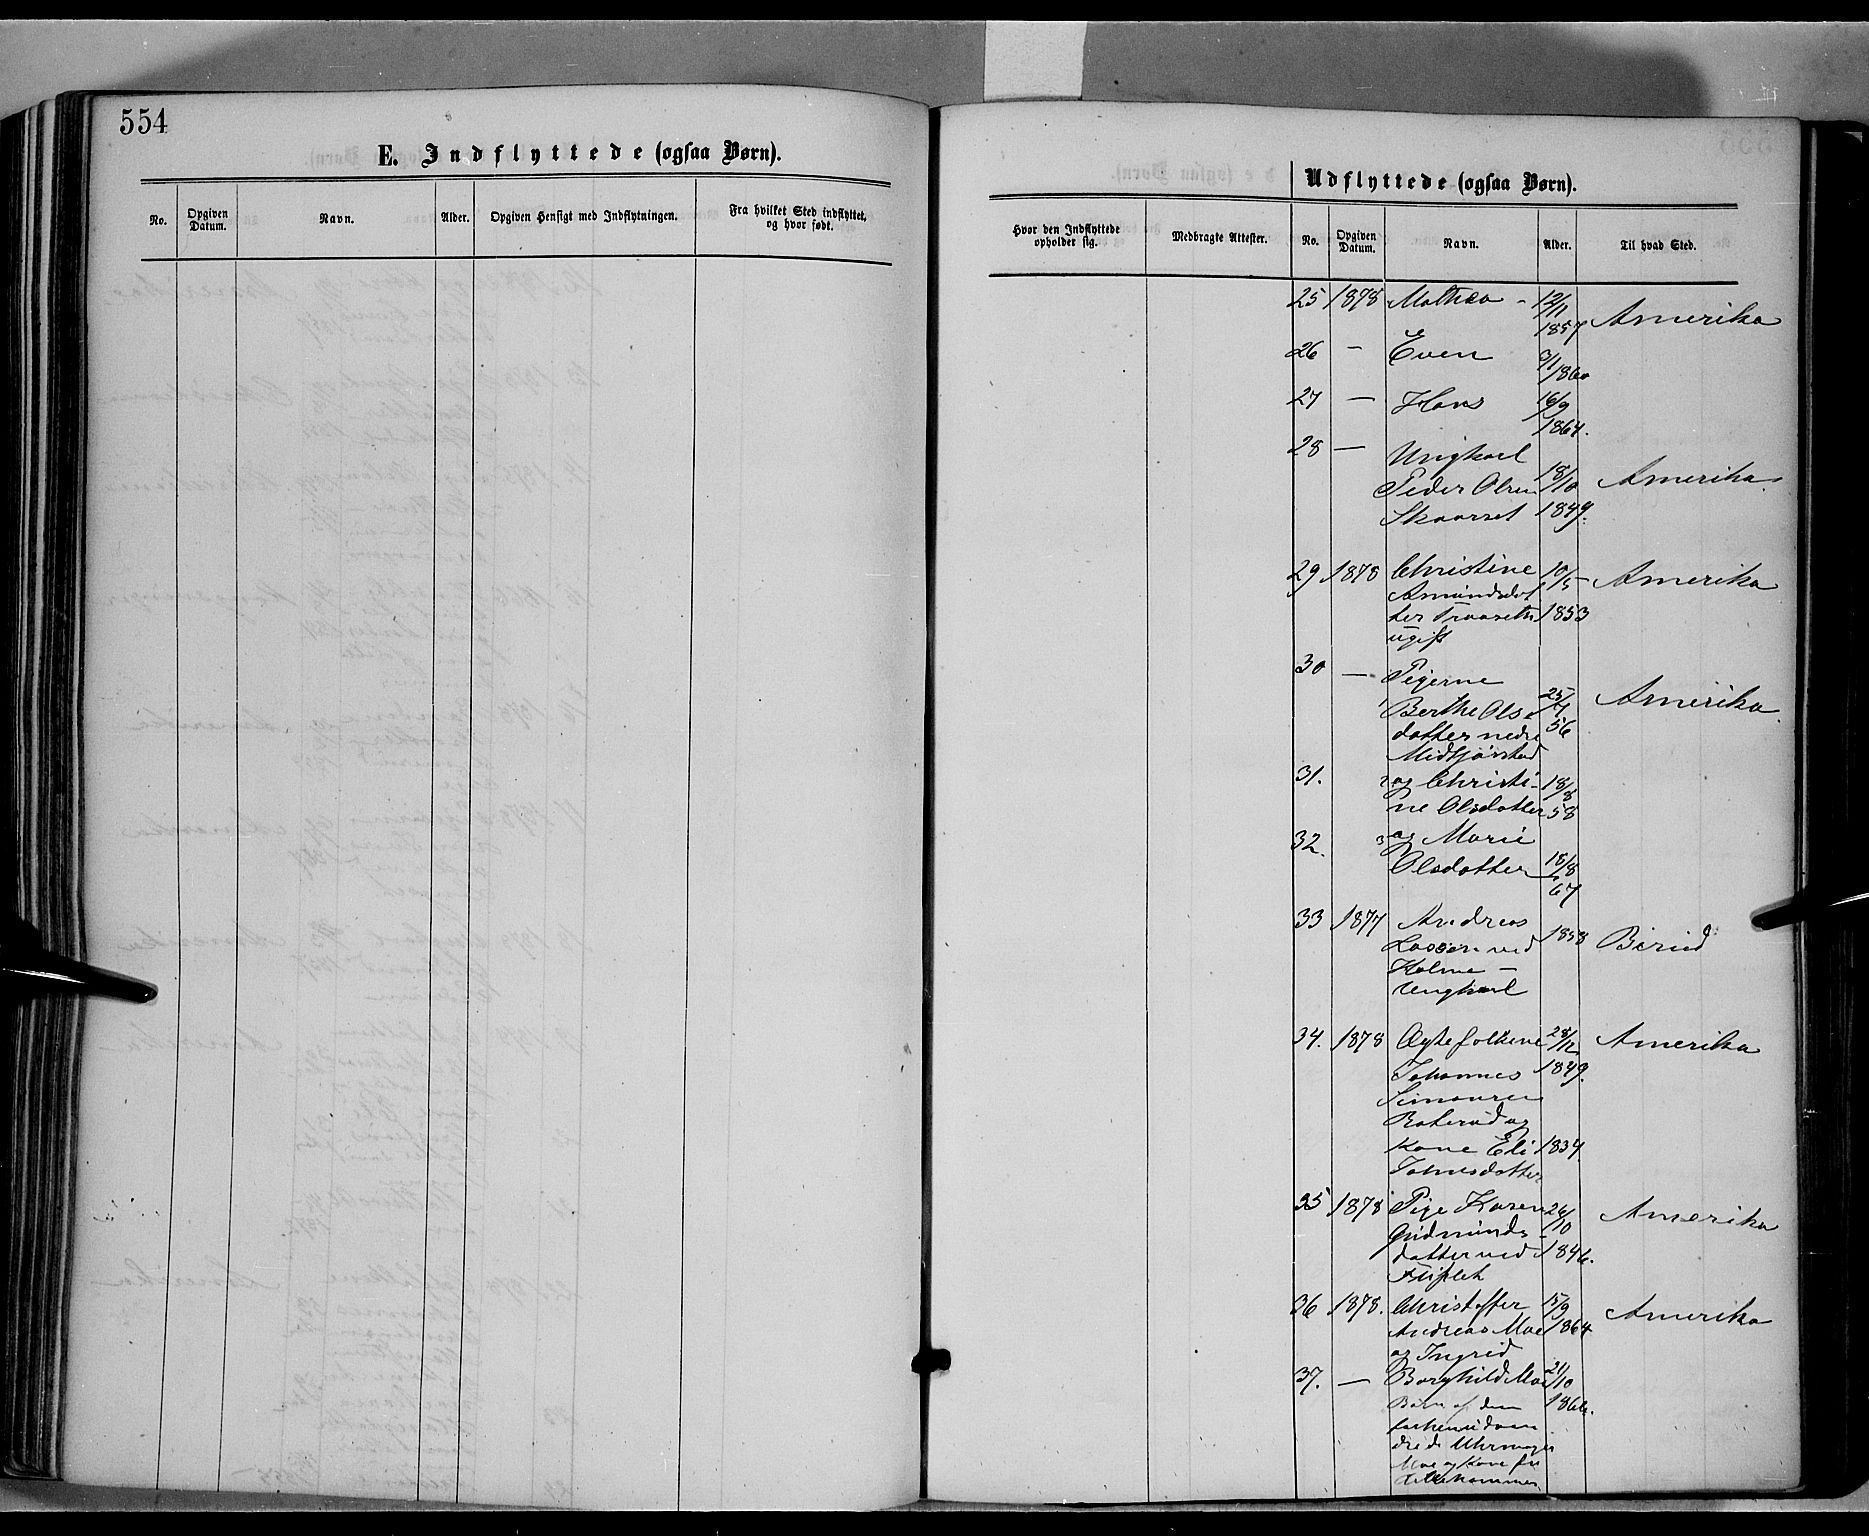 554
E. Indflyttede (ogsaa Børn).
No. Opgiven Datum. Navn. Alder. Opgiven Hensigt med Indflytningen. Fra hvilket Sted indflyttet, og hvor født.
Udflyttede (ogsaa Børn).
Hvor den Indflyttede opholder sig. Medbragte Attester. No. Opgiven Datum. Navn. Alder. Til hvad Sted.
25 1878 Mathea - 12/11 Amerika
1857
26 — Even 3/1
1860
27 — Hans 16/9
1864.
28 — Ungkarl
Peder Olsen 18/10 Amerika.
Skaarset 1849.
29 1878 Christine 10/5 Amerika
Amundsdot
ter Traaseth 1853
ugift
30 — Pigerne
1 Berthe Ols 25/7 Amerika
datter nedre 56
Midtjørstad
31. 2 og Christi- 18/8
ne Olsdatter 58
32. 3 og Marie
Olsdatter 18/8
67
33 1877 Andreas 1858 Birid
Lassen ved
Holme —
Ungkarl
34. 1878 Ægtefolkene 28/12 Amerika
Johannes 1849.
Simonsen
Roterud og
Kone Eli 1834.
Johnsdatter
35 1878 Pige Karen 26/10 Amerika
Gudmunds-
datter ved 1846.
Fliflet
36 1878. Christoffer 15/9 Amerika
Andreas Moe 1864
og Ingrid
37. — Borghild Moe 21/10
Børn af den 1866.
forhenudvan
drede Uhrmager
Moe og Kone fra
Lillehammer